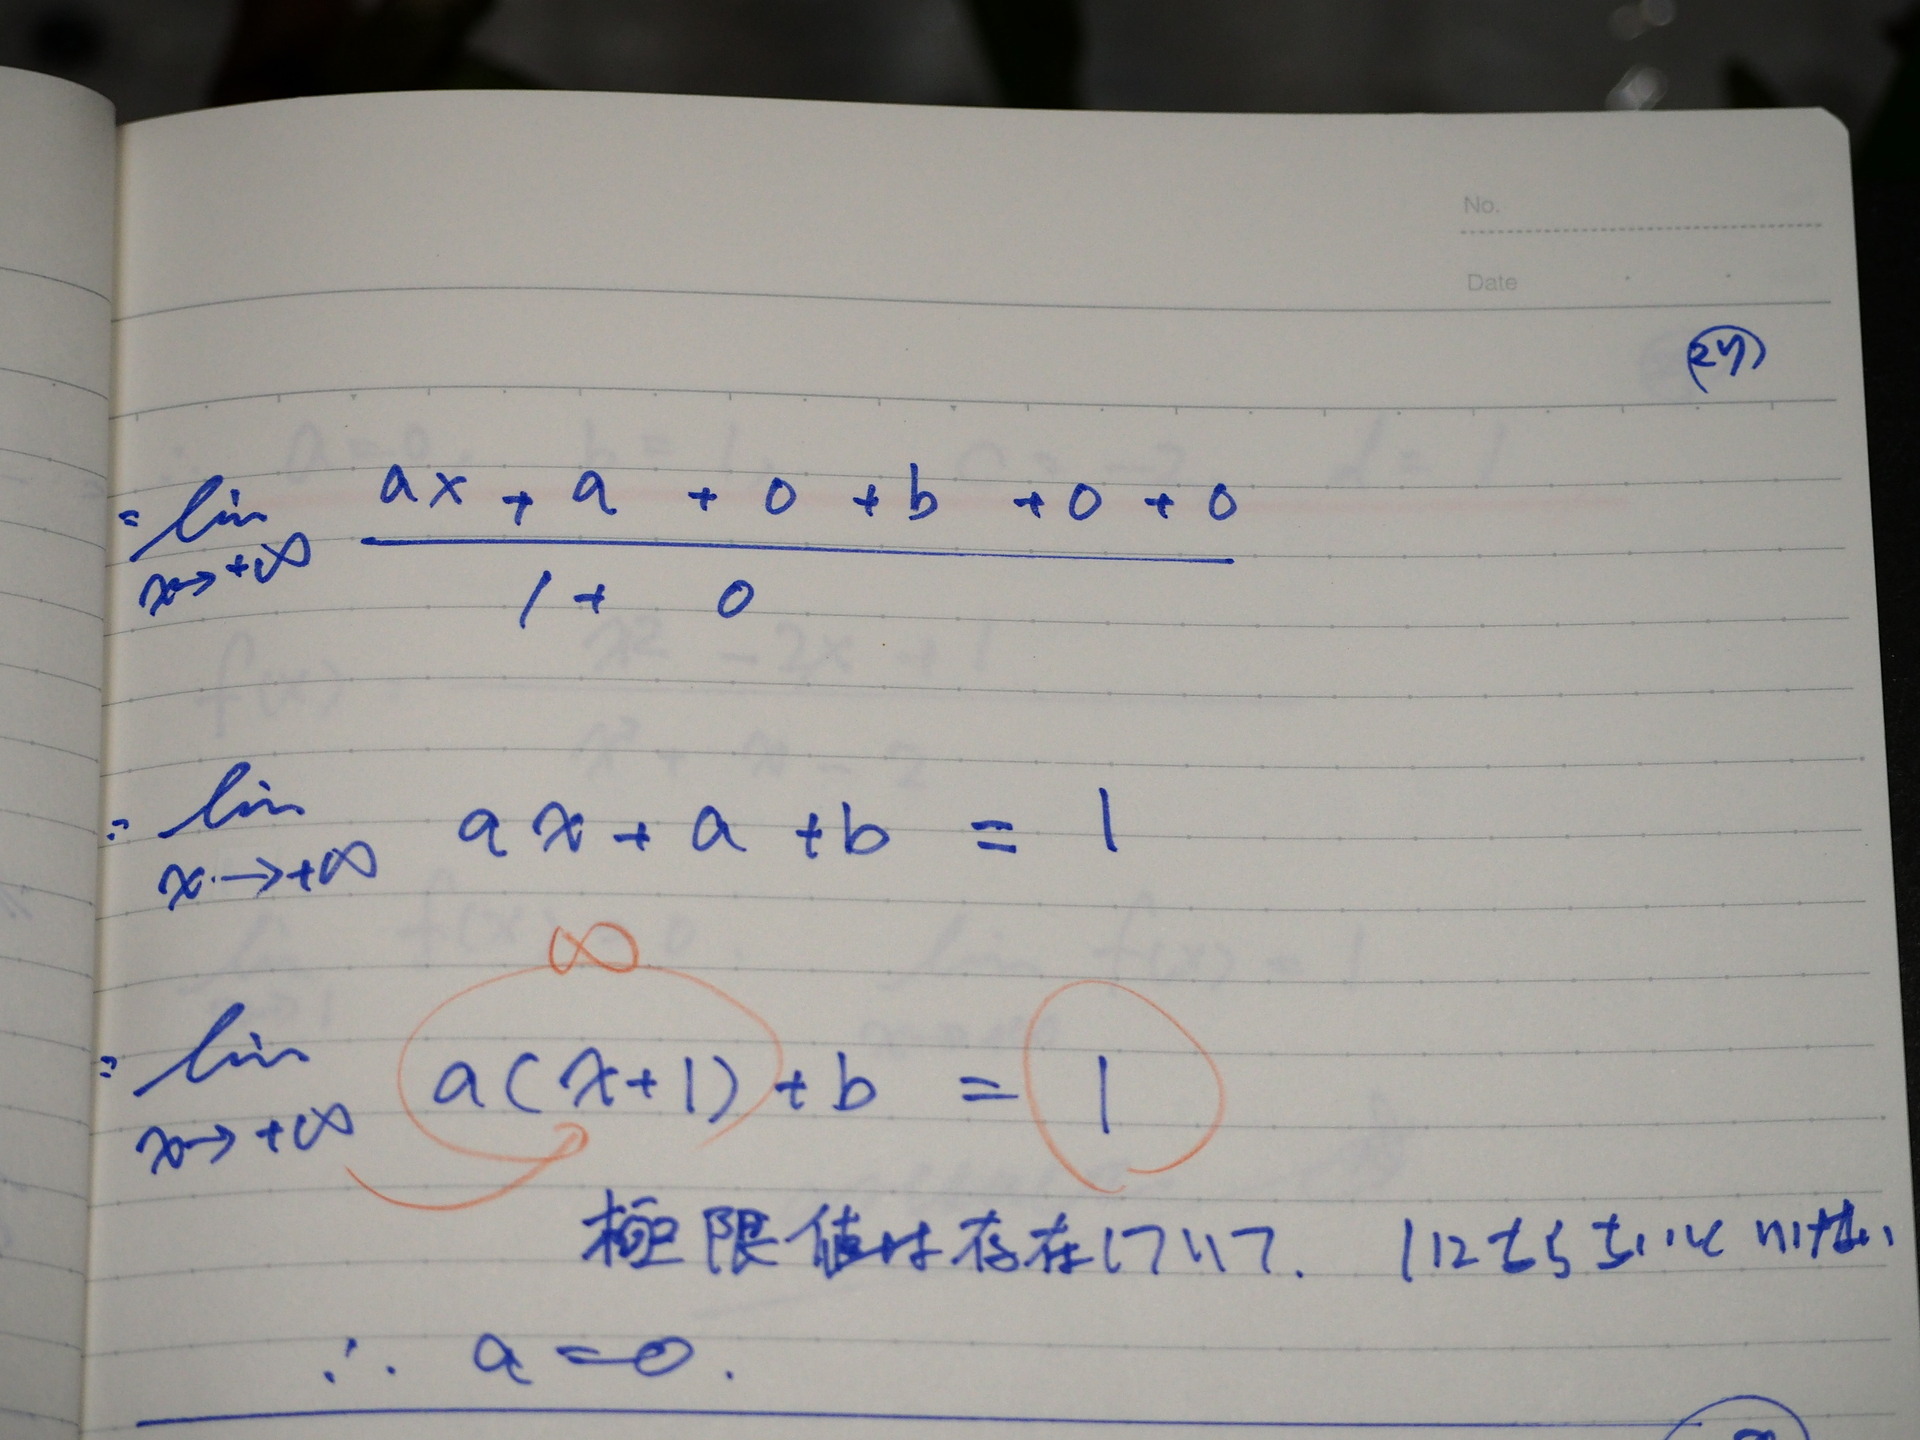 No.
Date
(27)
= lim x→+∞ (ax + a + 0 + b + 0 + 0) / (1 + 0)
= lim x→+∞ ax + a + b = 1
∞
= lim x→+∞ a(x+1) + b = 1
極限値は存在していて. 1にならないといけない
∴ a = 0.